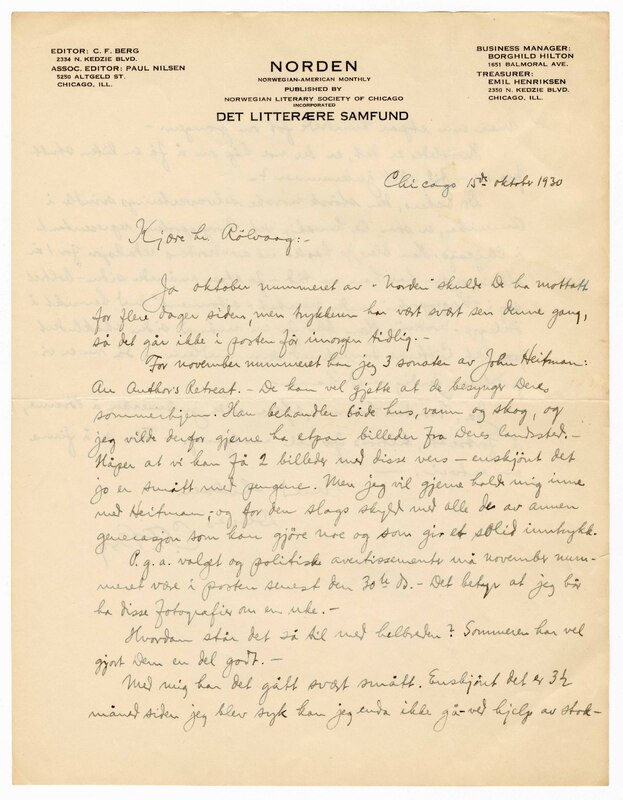 EDITOR: C. F. BERG
2334 N. KEDZIE BLVD.
ASSOC. EDITOR: PAUL NILSEN
5250 ALTGELD ST.
CHICAGO, ILL.
NORDEN
NORWEGIAN-AMERICAN MONTHLY
PUBLISHED BY
NORWEGIAN LITERARY SOCIETY OF CHICAGO
INCORPORATED
DET LITTERÆRE SAMFUND
BUSINESS MANAGER:
BORGHILD HILTON
1651 BALMORAL AVE.
TREASURER:
EMIL HENRIKSEN
2350 N. KEDZIE BLVD.
CHICAGO, ILL.
Chicago 15de oktober 1930
Kjære hr. Rölvaag:-
Ja oktober nummeret av "Norden" skulde De ha mottatt
for flere dager siden, men trykkeren har vært svært sen denne gang,
så det går ikke i posten för imorgen tidlig.-
For november nummeret har jeg 3 sonater av John Heitman:
An Author's Retreat. - De kan vel gjette at de besynger Deres
sommerhjem. Han behandler både hus, vann og skog, og
jeg vilde derfor gjerne ha etpar billeder fra Deres landsted.-
Håper at vi kan få 2 billeder med disse vers - enskjönt det
jo er smått med pengene. Men jeg vil gjerne holde mig inne
med Heitman, og for den slags skyld med alle de av annen
generasjon som kan gjöre noe og som gir et solid inntrykk.
P.g.a. valget og politiske avertissementer må november num-
meret være i posten senest den 30te ds. - Det betyr at jeg bör
ha disse fotografier om en uke. -
Hvordan står det så til med helbreden? Sommeren har vel
gjort Dem en del godt. -
Med mig har det gått svært smått. Enskjönt det er 3½
måned siden jeg blev syk kan jeg enda ikke gå - ved hjelp av stok-